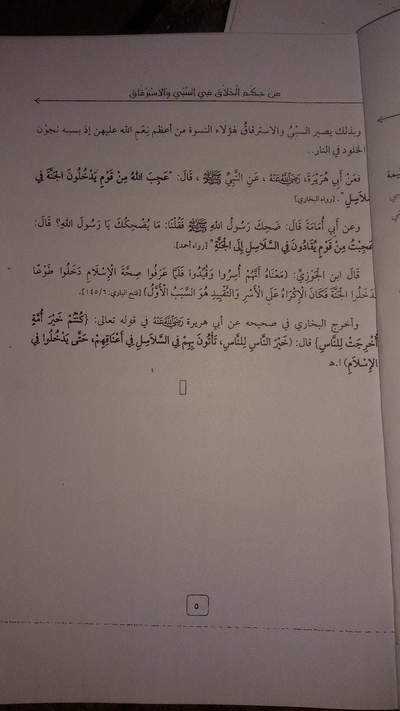 من حكم الخلاق في السبي والاسترقاق
وبذلك يصير السبيُ والاسترقاقُ لهؤلاء النسوة من أعظم نِعَمِ الله عليهن إذ بسببه نجوْن
الخلود في النار..
فعَنْ أَبِي هُرَيْرَةَ، رَضِيَ اللَّهُ عَنْهُ ، عَنِ النَّبِيِّ ﷺ ، قَالَ: "عَجِبَ اللهُ مِنْ قَوْمٍ يَدْخُلُونَ الجَنَّةَ فِي
سَلَاسِلِ". [رواه البخاري]
وعن أبي أُمَامَةَ قَالَ: ضَحِكَ رَسُولُ اللهِ ﷺ فَقُلْنَا: مَا يُضْحِكُكَ يَا رَسُولَ اللهِ؟ قَالَ:
عَجِبْتُ مِنْ قَوْمٍ يُقَادُونَ فِي السَّلَاسِلِ إِلَى الْجَنَّةِ" [رواه أحمد].
قَالَ ابن الجَوْزِيّ: (مَعْنَاهُ أَنَّهُمْ أُسِرُوا وَقُيِّدُوا فَلَمَّا عَرَفُوا صِحَّةَ الْإِسْلَامِ دَخَلُوا طَوْعًا
فَدَخَلُوا الْجَنَّةَ فَكَانَ الْإِكْرَاهُ عَلَى الْأَسْرِ وَالتَّقْيِيدِ هُوَ السَّبَبُ الْأَوَّلُ) [فتح الباري: ١٤٥/٦].
وأخرج البخاري في صحيحه عن أبي هريرة رَضِيَ اللَّهُ عَنْهُ في قوله تعالى: {كُنْتُمْ خَيْرَ أُمَّةٍ
أُخْرِجَتْ لِلنَّاسِ} قال: (خَيْرَ النَّاسِ لِلنَّاسِ، تَأْتُونَ بِهِمْ فِي السَّلَاسِلِ فِي أَعْنَاقِهِمْ، حَتَّى يَدْخُلُوا فِي
الْإِسْلَامِ) ا.هـ
٥